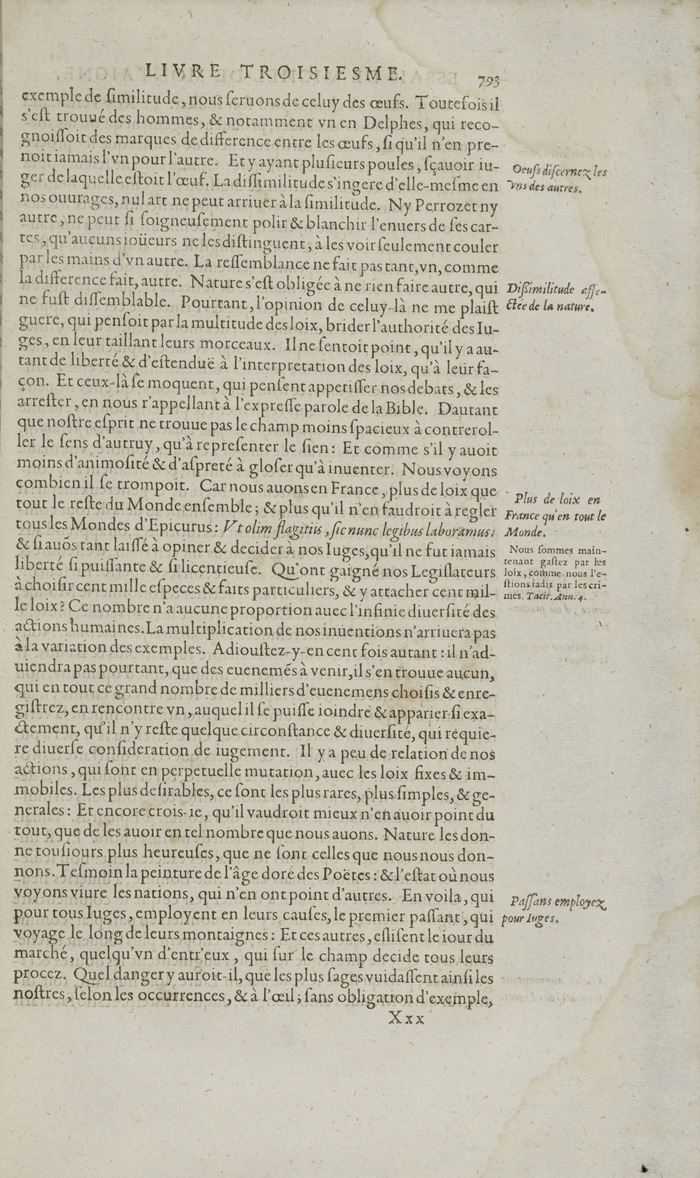 LIVRE TROISIESME. 793
exemple de ſimilitude, nous ſeruons de celuy des œufs. Toutefois il
s'eſt trouué des hommes, & notamment vn en Delphes, qui reco-
gnoiſſoit des marques de difference entre les œufs, ſi qu'il n'en pre-
noit iamais l'vn pour l'autre. Et y ayant pluſieurs poules, ſçauoir iu-
ger de laquelle eſtoit l'œuf. La diſſimilitude s'ingere d'elle-meſme en
nos ouurages, nul art ne peut arriuer à la ſimilitude. Ny Perrozet ny
autre, ne peut ſi ſoigneuſement polir & blanchir l'enuers de ſes car-
tes, qu'aucuns ioüeurs ne les diſtinguent, à les voir ſeulement couler
par les mains d'vn autre. La reſſemblance ne fait pas tant, vn, comme
la difference fait, autre. Nature s'eſt obligée à ne rien faire autre, qui
ne fuſt diſſemblable. Pourtant, l'opinion de celuy-là ne me plaiſt
guere, qui penſoit par la multitude des loix, brider l'authorité des Iu-
ges, en leur taillant leurs morceaux. Il ne ſentoit point, qu'il y a au-
tant de liberté & d'eſtenduë à l'interpretation des loix, qu'à leur fa-
çon. Et ceux-là ſe moquent, qui penſent appetiſſer nos debats, & les
arreſter, en nous r'appellant à l'expreſſe parole de la Bible. Dautant
que noſtre eſprit ne trouue pas le champ moins ſpacieux à contrerol-
ler le ſens d'autruy, qu'à repreſenter le ſien: Et comme s'il y auoit
moins d'animoſité & d'aſpreté à gloſer qu'à inuenter. Nous voyons
combien il ſe trompoit. Car nous auons en France, plus de loix que
tout le reſte du Monde enſemble; & plus qu'il n'en faudroit à regler
tous les Mondes d'Epicurus: Vt olim flagitiis, ſic nunc legibus laboramus:
& ſi auõs tant laiſſé à opiner & decider à nos Iuges, qu'il ne fut iamais
liberté ſi puiſſante & ſi licentieuſe. Qu'ont gaigné nos Legiſlateurs
à choiſir cent mille eſpeces & faits particuliers, & y attacher cent mil-
le loix? Ce nombre n'a aucune proportion auec l'infinie diuerſité des
actions humaines. La multiplication de nos inuentions n'arriuera pas
à la variation des exemples. Adiouſtez-y-en cent fois autant: il n'ad-
uiendra pas pourtant, que des euenemés à venir, il s'en trouue aucun,
qui en tout ce grand nombre de milliers d'euenemens choiſis & enre-
giſtrez, en rencontre vn, auquel il ſe puiſſe ioindre & apparier ſi exa-
ctement, qu'il n'y reſte quelque circonſtance & diuerſité, qui requie-
re diuerſe conſideration de iugement. Il y a peu de relation de nos
actions, qui ſont en perpetuelle mutation, auec les loix fixes & im-
mobiles. Les plus deſirables, ce ſont les plus rares, plus ſimples, & ge-
nerales: Et encore crois-ie, qu'il vaudroit mieux n'en auoir point du
tout, que de les auoir en tel nombre que nous auons. Nature les don-
ne touſiours plus heureuſes, que ne ſont celles que nous nous don-
nons. Teſmoin la peinture de l'âge doré des Poëtes: & l'eſtat où nous
voyons viure les nations, qui n'en ont point d'autres. En voila, qui
pour tous Iuges, employent en leurs cauſes, le premier paſſant, qui
voyage le long de leurs montaignes: Et ces autres, eſliſent le iour du
marché, quelqu'vn d'entr'eux, qui ſur le champ decide tous leurs
procez. Quel danger y auroit-il, que les plus ſages vuidaſſent ainſi les
noſtres, ſelon les occurrences, & à l'œil; ſans obligation d'exemple,
Xxx
Oeufs diſcernez les
vns des autres.
Diſſimilitude affe-
ctée de la nature.
Plus de loix en
France qu'en tout le
Monde.
Nous ſommes main-
tenant gaſtez par les
loix, comme nous l'e-
ſtions iadis par les cri-
mes. Tacit. Ann. 4.
Paſſans employez
pour Iuges.